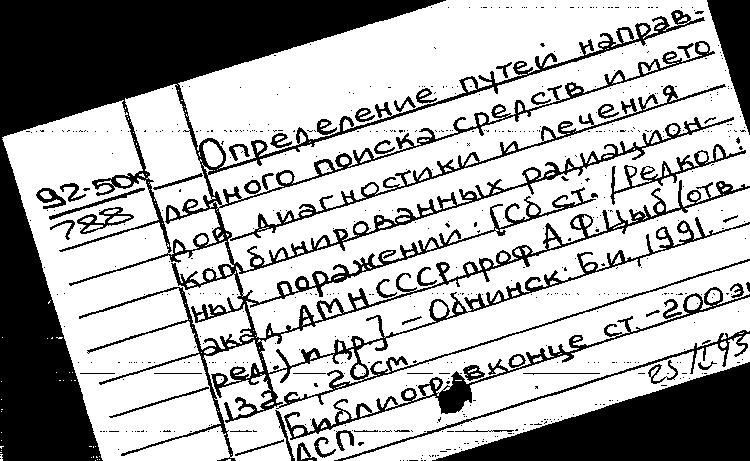 92-50к
788
Определение путей направ-
ленного поиска средств и мето
дов диагностики и лечения
комбинированных радиацион-
ных поражений: [Сб ст. / Редкол.:
акад. АМН СССР, проф. А.Ф. Цыб (отв.
ред.) и др.] – Обнинск: Б.и., 1991. –
132 с.; 20 см.
Библиогр. в конце ст. – 200 э
ДСП.